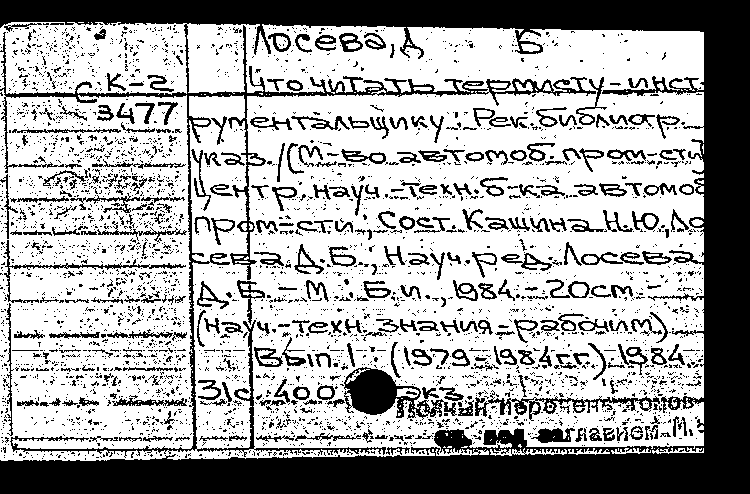 Лосева, Д Б
С К-2
3477
Что читать термисту-инст-
рументальщику: Рек. библиогр.
указ. /(М-во автомоб. пром-сти)
Центр. науч.-техн. б-ка автомоб
пром-сти; Сост. Кашина Н.Ю, Ло
сева Д.Б., Науч. ред. Лосева
Д.Б. - М: Б.и., 1984 - 20см -
(науч.-техн. знания - рабочим)
Вып. 1: (1979-1984гг.) 1984.
31с. 400 экз
Полный перечень томов
см. под заглавием М.